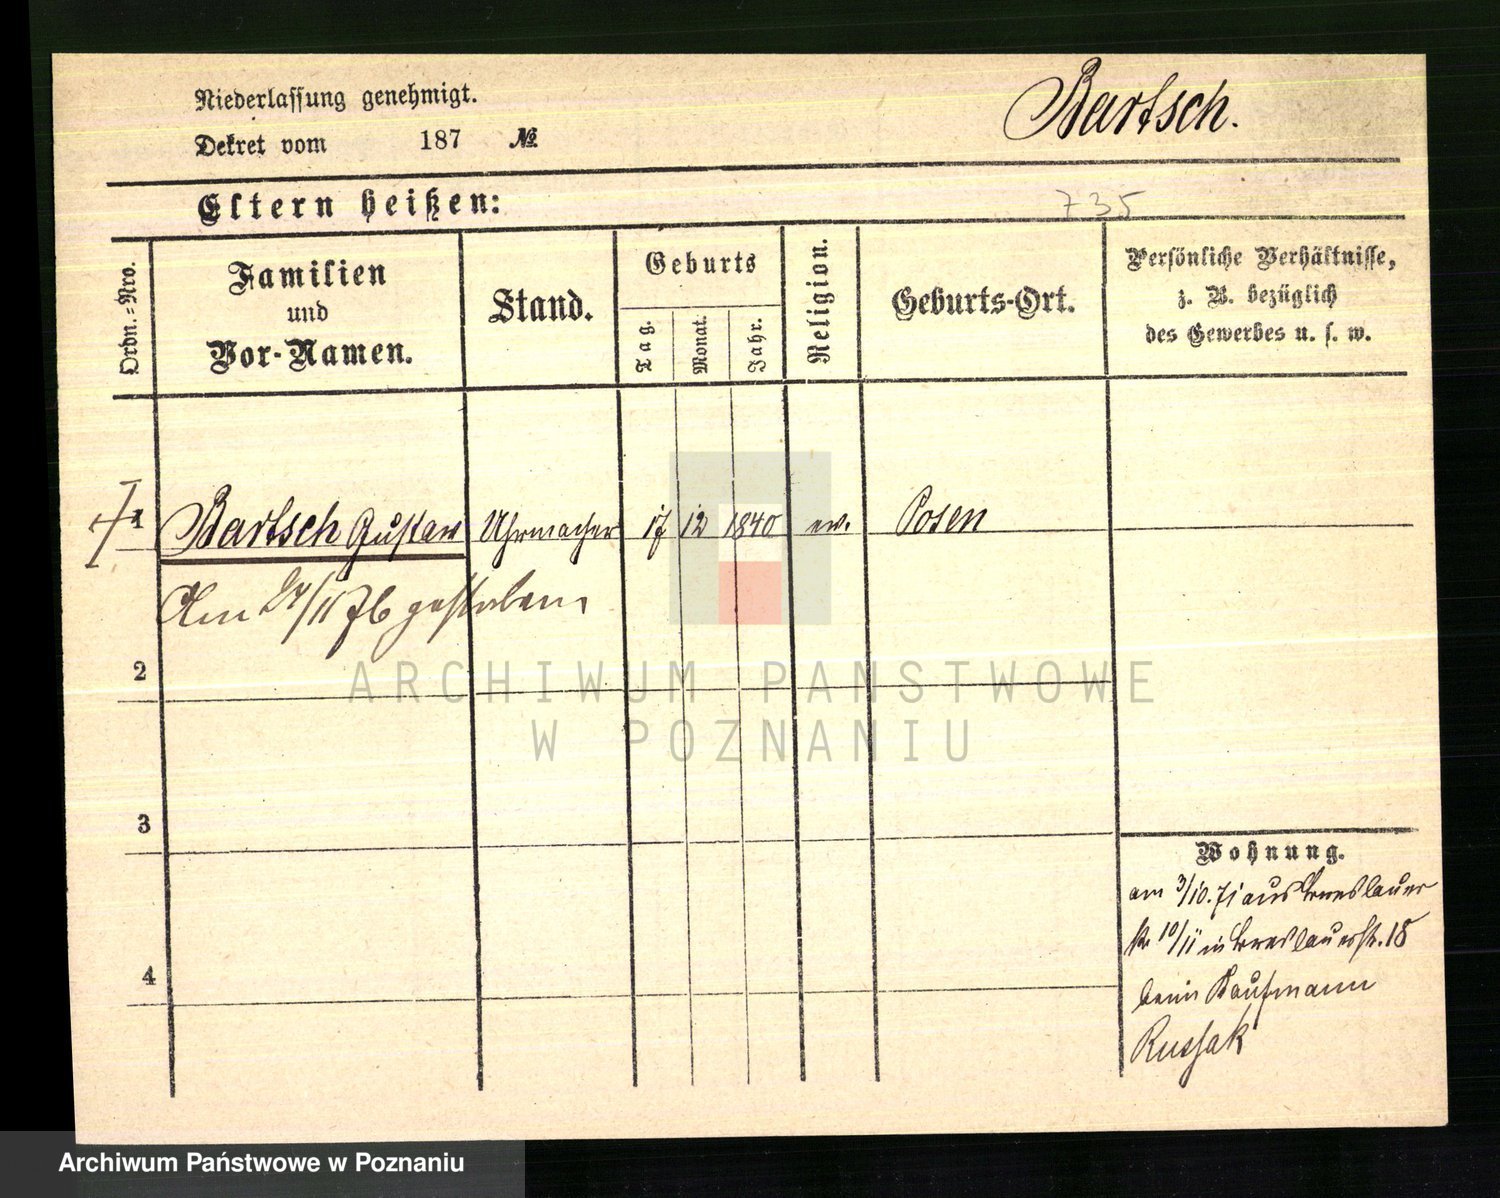 Niederlassung genehmigt.
Dekret vom 187 №
Bartsch.
Eltern heißen:
735
Ordn.-Nro.
Familien
und
Vor-Namen.
Stand.
Geburts
Tag.
Monat.
Jahr.
Religion.
Geburts-Ort.
Persönliche Verhältnisse,
z. B. bezüglich
des Gewerbes u. s. w.
1 Bartsch Gustav Uhrmacher 17 12 1840 ev. Posen
Am 24/11 76 gestorben
2
ARCHIWUM PAŃSTWOWE
W POZNANIU
3
4
Wohnung.
am 3/10. 71 aus Breslauer
str 10/11 in Breslauerstr. 18
beim Kaufmann
Russak
Archiwum Państwowe w Poznaniu